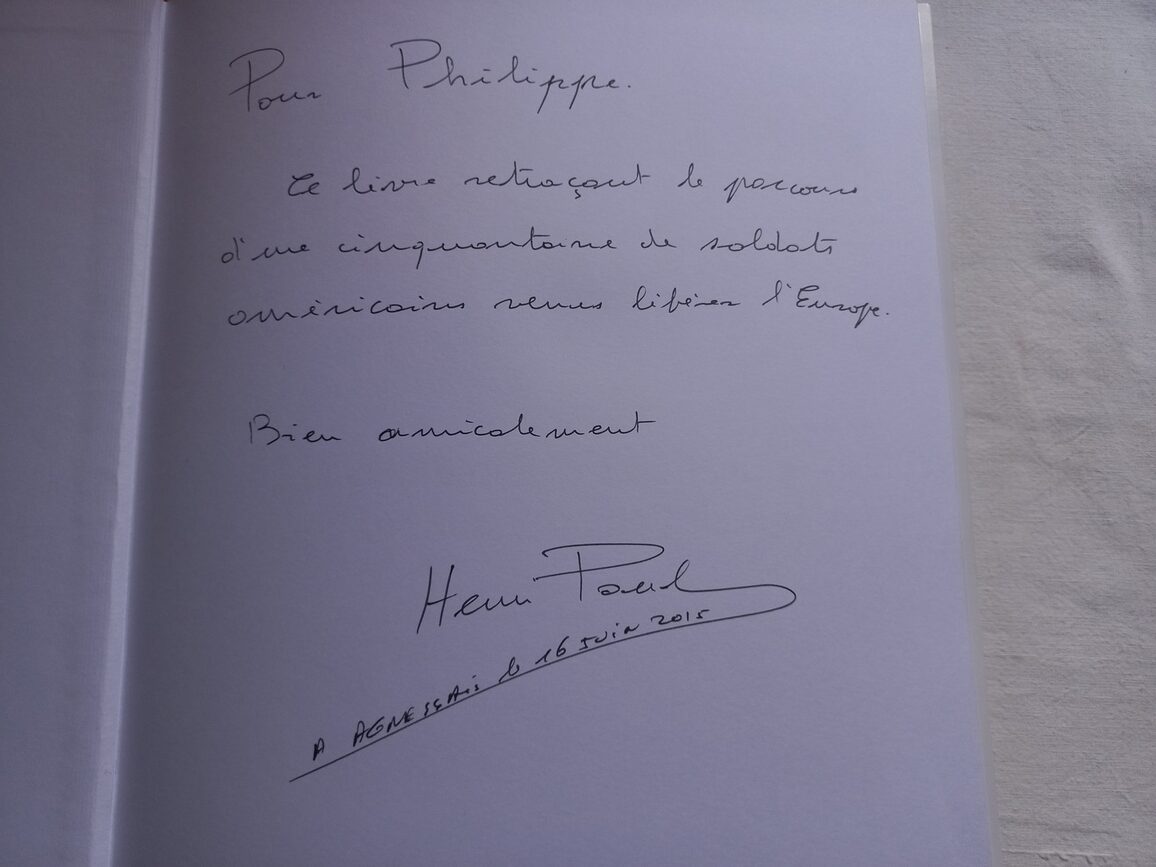 Pour Philippe.
Ce livre retraçant le parcours
d'une cinquantaine de soldats
américains venus libérer l'Europe.
Bien amicalement
Henri Paul
A AGNESSAIS le 16 JUIN 2015